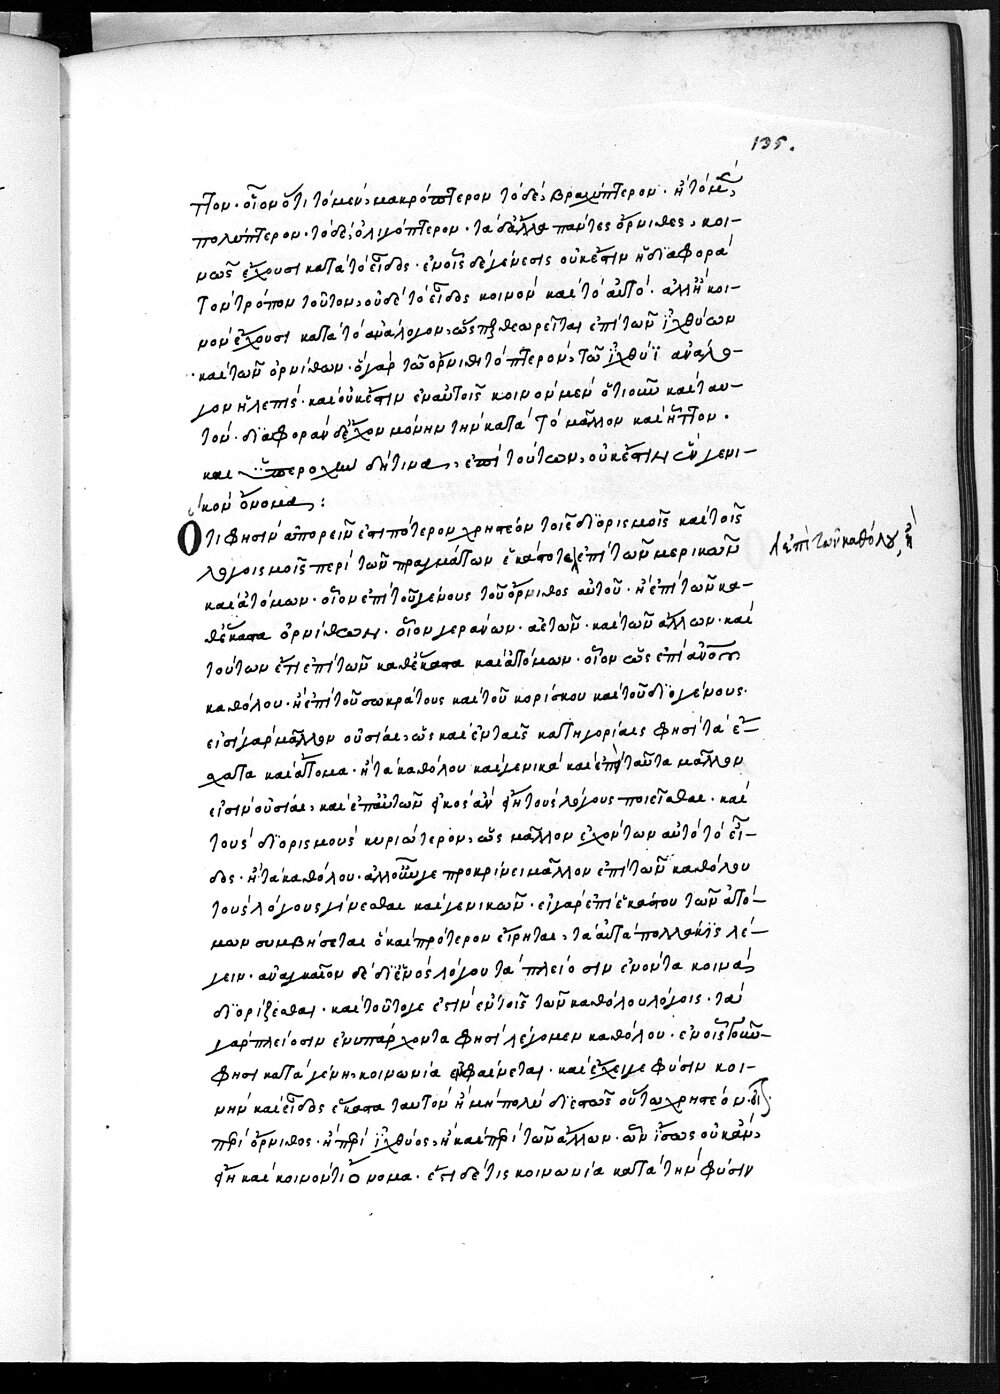 135.
ττον· οἷον ὅτι τὸ μὲν, μακρόπτερον τὸ δὲ, βραχύπτερον· ἢ τὸ μὲν,
πολύπτερον· τὸ δὲ, ὀλιγόπτερον· τὰ δ' ἄλλα πάντες ὄρνιθες, κοι-
νῶς ἔχουσι κατὰ τὸ εἶδος· ἐν οἷς δὲ γένεσις οὐκ ἔστιν ἡ διαφορὰ
τὸν τρόπον τοῦτον, οὐδὲ τὸ εἶδος κοινὸν καὶ τὸ αὐτό· ἀλλ' ἢ κοι-
νὸν ἔχουσι κατὰ τὸ ἀνάλογον, ὥσπερ θεωρεῖται ἐπὶ τῶν ἰχθύων
καὶ τῶν ὀρνίθων· ὃ γὰρ τῷ ὄρνιθι τὸ πτερὸν, τῷ ἰχθύϊ ἀνάλο-
γον ἡ λεπίς· καὶ οὐκ ἔστιν ἐν αὐτοῖς κοινὸν μὲν ὁτιοῦν καὶ ταυ-
τόν· διαφορὰν δ' ἔχον μόνην τὴν κατὰ τὸ μᾶλλον καὶ ἧττον·
καὶ ὑπεροχὴν δή τινα, ἐπὶ τούτων, οὐκ ἔστιν ἓν γενι-
κὸν ὄνομα:
Ὅτι φησὶν ἀπορεῖν ἐστι πότερον χρηστέον τοῖς διορισμοῖς καὶ τοῖς
λογισμοῖς περὶ τῶν πραγμάτων ἑκάστοτε ἐπὶ τῶν μερικῶν
ἐπὶ τῶν καθόλου, ἢ
καὶ ἀτόμων· οἷον ἐπὶ τοῦ γένους τοῦ ὄρνιθος αὐτοῦ· ἢ ἐπὶ τῶν κα-
θέκαστα ὀρνίθων· οἷον γεράνων· ἀετῶν· καὶ τῶν ἄλλων· καὶ
τούτων ἔτι ἐπὶ τῶν καθέκαστα καὶ ἀτόμων· οἷον ὡς ἐπὶ ἀνθρώπου
καθόλου· ἢ ἐπὶ τοῦ σωκράτους καὶ τοῦ κορίσκου καὶ τοῦ διογένους·
εἰσὶ γὰρ μᾶλλον οὐσίαι, ὡς καὶ ἐν ταῖς κατηγορίαις φησὶ τὰ ἔ-
σχατα καὶ ἄτομα· ἢ τὰ καθόλου καὶ γενικὰ καὶ ἐπεὶ ταῦτα μᾶλλον
εἰσὶν οὐσίαι, καὶ ἐπ' αὐτῶν εἰκὸς ἂν εἴη τοὺς λόγους ποιεῖσθαι· καὶ
τοὺς διορισμοὺς κυριώτερον, ὡς μᾶλλον ἐχόντων αὐτὸ τὸ εἶ-
δος· ἢ τὰ καθόλου· ἀλλ' ὅμως γε προκρίνει μᾶλλον ἐπὶ τῶν καθόλου
τοὺς λόγους γίνεσθαι καὶ γενικῶν· εἰ γὰρ ἐπὶ ἑκάστου τῶν ἀτό-
μων συμβήσεται ὃ καὶ πρότερον εἴρηται, τὰ αὐτὰ πολλάκις λέ-
γειν· ἀναγκαῖον δὲ δι' ἑνὸς λόγου τὰ πλείοσιν ἐνόντα κοινὰ,
διορίζεσθαι· καὶ τοῦτό γε ἐστὶν ἐν τοῖς τῶν καθόλου λόγοις· τὰ
γὰρ πλείοσιν ἐνυπάρχοντα φησὶ λέγομεν καθόλου· ἐν οἷς τοίνυν
φησὶ κατὰ γένη, κοινωνία ἐμφαίνεται· καὶ ἔχει γε φύσιν κοι-
νὴν καὶ εἶδος ἕκαστα ταυτὸν ἢ μὴ πολὺ διεστὼς οὕτω χρηστέον·
περὶ ὄρνιθος· ἢ περὶ ἰχθύος, ἢ καὶ περὶ τῶν ἄλλων· ὧν ἴσως οὐκ ἂν,
εἴη καὶ κοινόν τι ὄνομα· ἔστι δέ τις κοινωνία κατὰ τὴν φύσιν